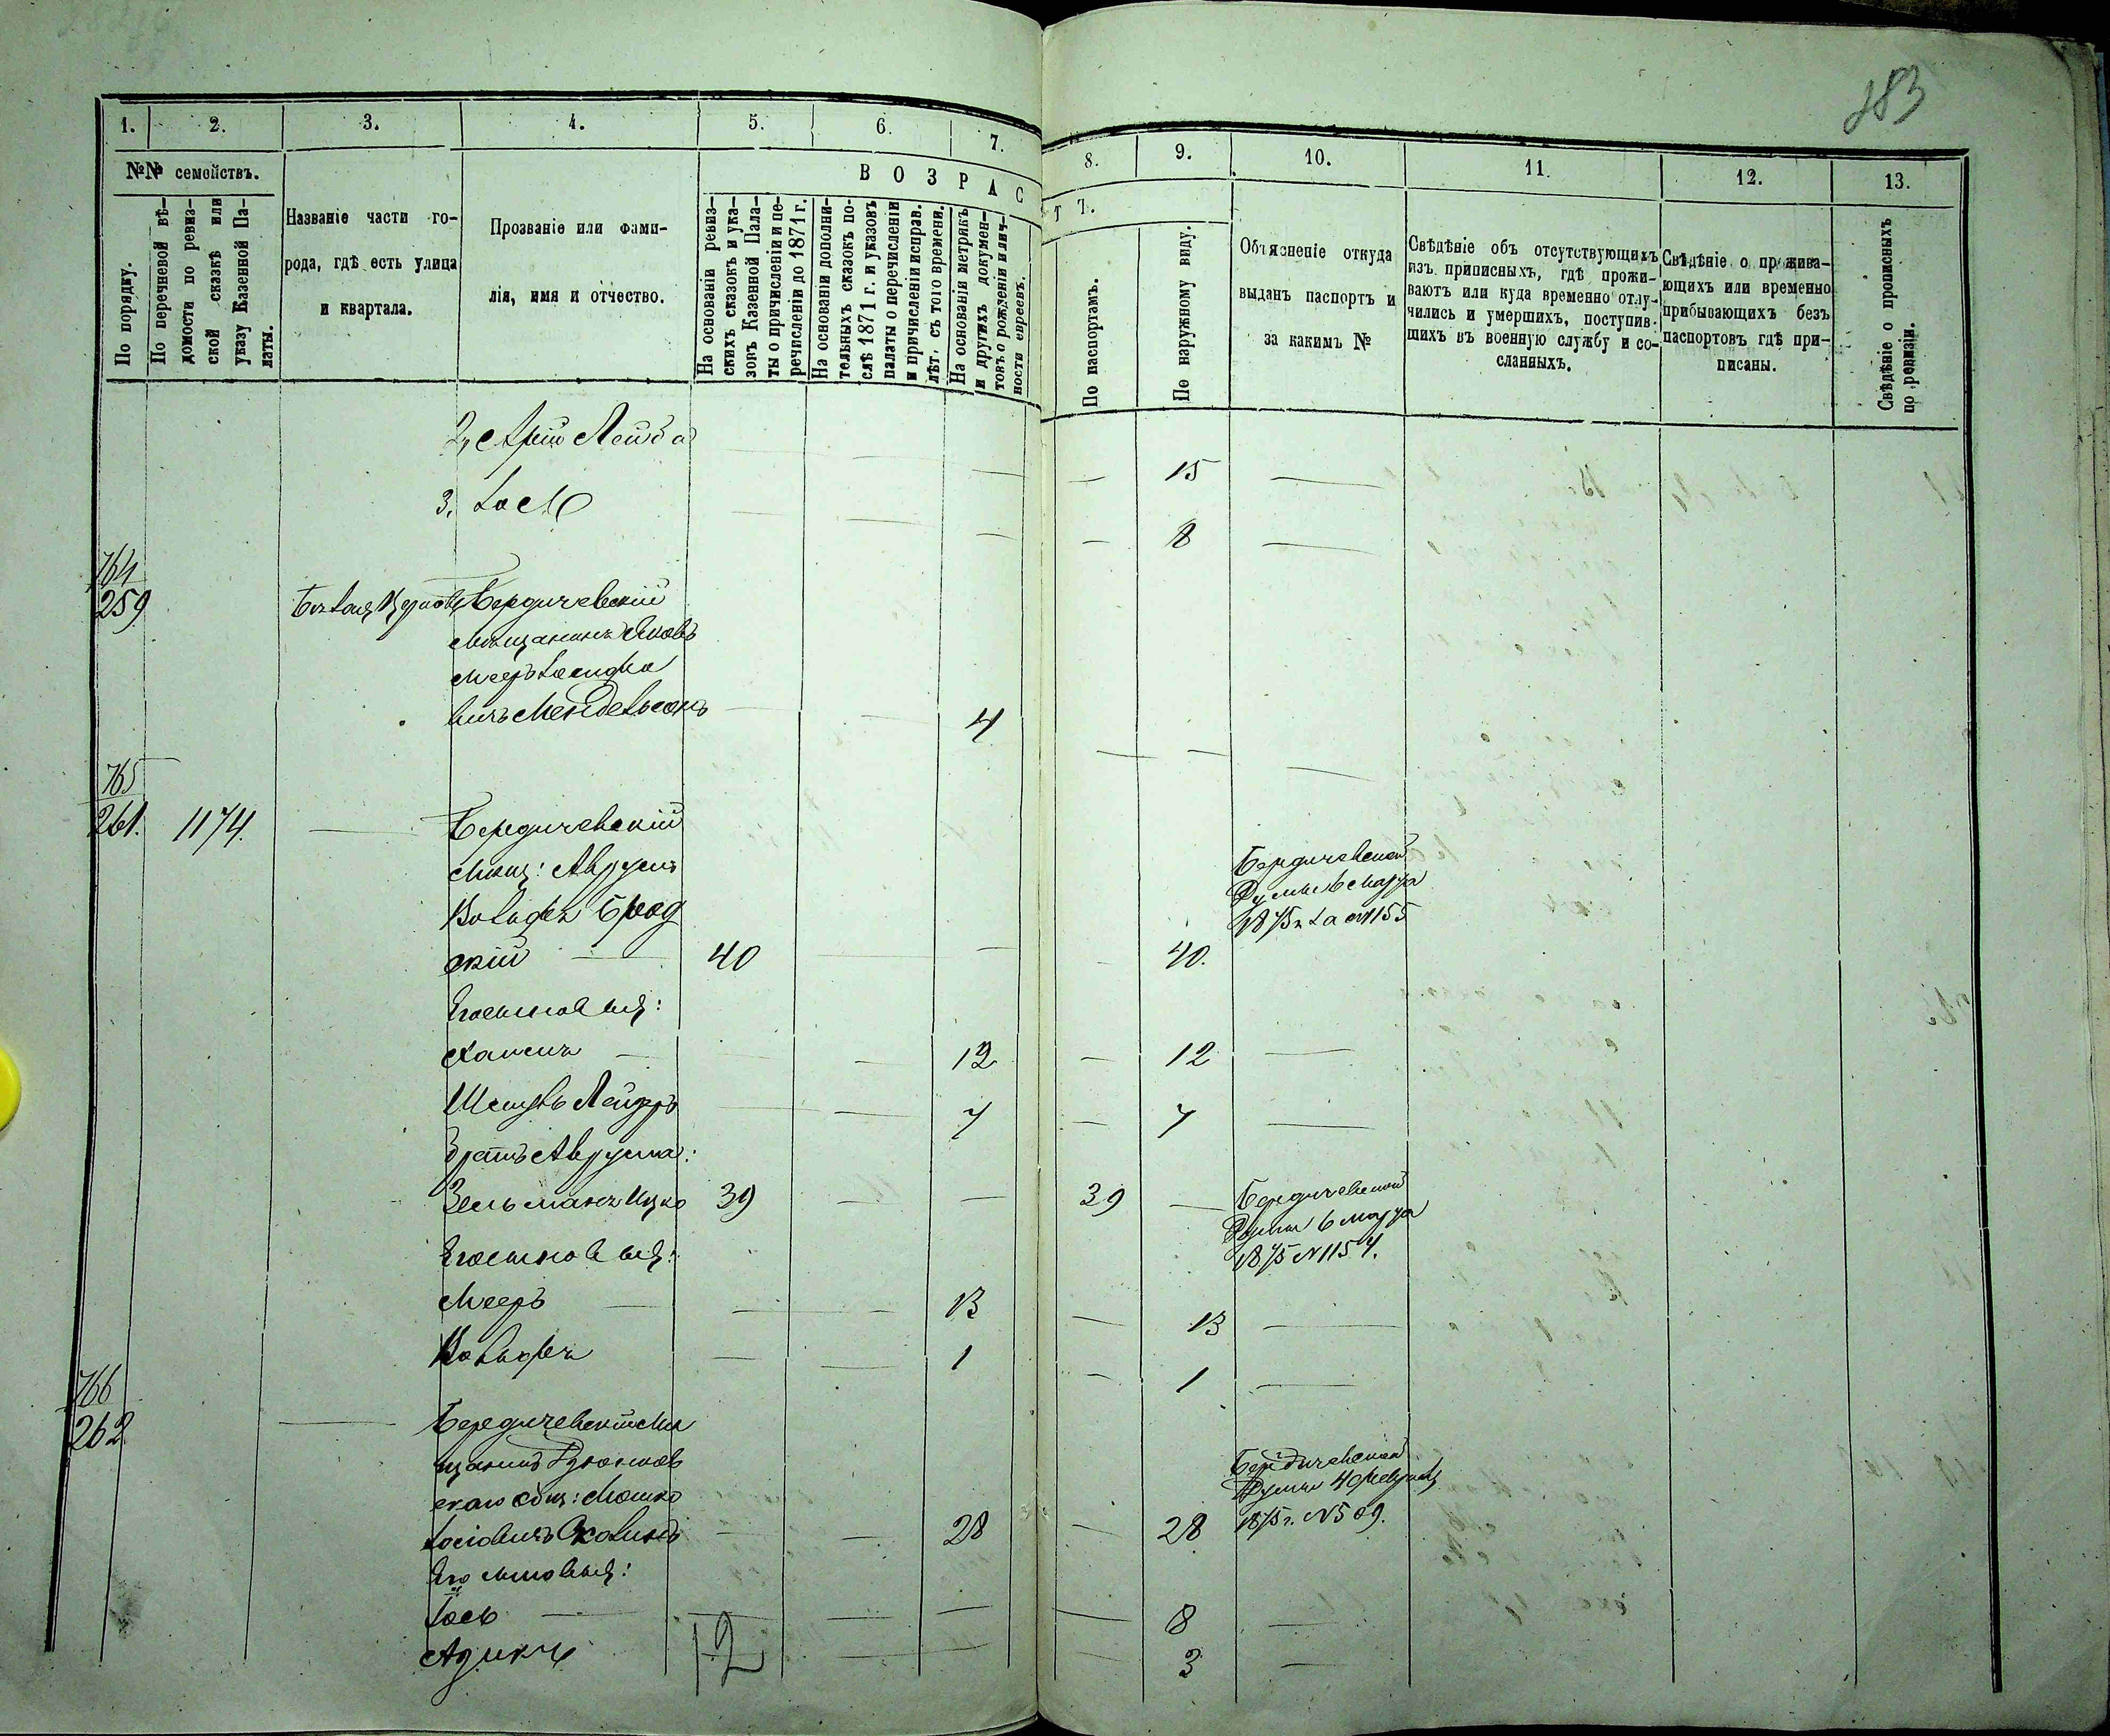 183
1. 2. 3. 4. 5. 6. 7. 8. 9. 10. 11. 12. 13.
№№ семействъ.
По порядку.
По перечневой вѣ-
домости по ревиз-
ской сказкѣ или
указу Казенной Па-
латы.
Названіе части го-
рода, гдѣ есть улица
и квартала.
Прозваніе или фами-
лія, имя и отчество.
ВОЗРАСТЪ.
На основаніи ревиз-
скихъ сказокъ и ука-
зовъ Казенной Пала-
ты о причисленіи и пе-
речисленіи до 1871 г.
На основаніи дополни-
тельныхъ сказокъ по-
слѣ 1871 г. и указовъ
палаты о перечисленіи
и причисленіи исправ.
лѣт. съ того времени.
На основаніи метрикъ
и другихъ докумен-
товъ о рожденіи и лич-
ности евреевъ.
По паспортамъ.
По наружному виду.
Объясненіе откуда
выданъ паспортъ и
за какимъ №
Свѣдѣніе объ отсутствующихъ
изъ приписныхъ, гдѣ прожи-
ваютъ или куда временно отлу-
чились и умершихъ, поступив-
шихъ въ военную службу и со-
сланныхъ.
Свѣдѣніе о прожива-
ющихъ или временно
прибывающихъ безъ
паспортовъ гдѣ при-
писаны.
Свѣдѣніе о прописныхъ
по ревизіи.
2, Арій Лейба — — — — 15 —
3. — — — — 8 —
764
259 Бердичевскій
мѣщанинъ Яковъ
Мееръ Іосифо
вичъ Мендельсонъ — — 4 — — —
765
261. 1174. — Бердичевскій
мѣщ: Аврумъ Бердичевской
Вольфъ Брод Думы 6 Марта
скій — 40 — — — 40. 1875 г. за №1155
Его сыновья:
Хаимъ — — 12 — 12 —
Лейзеръ — — 7 — 7 —
Братъ Аврума:
Зельманъ Ицко 39 — — 39 — Бердичевской
Думы 6 Марта
Его сыновья: 1875 №1154.
Мееръ — — — 13 — 13 —
Вольфъ — — 1 — 1 —
766
262 — Бердичевскій мѣ
щанинъ Бердичевской
скаго общ: Мошко Думы 4 Февраля
— — 28 — 28 1875 г. №509.
Его сыновья:
Іось — — — — — 8 —
— — — 3 —
12